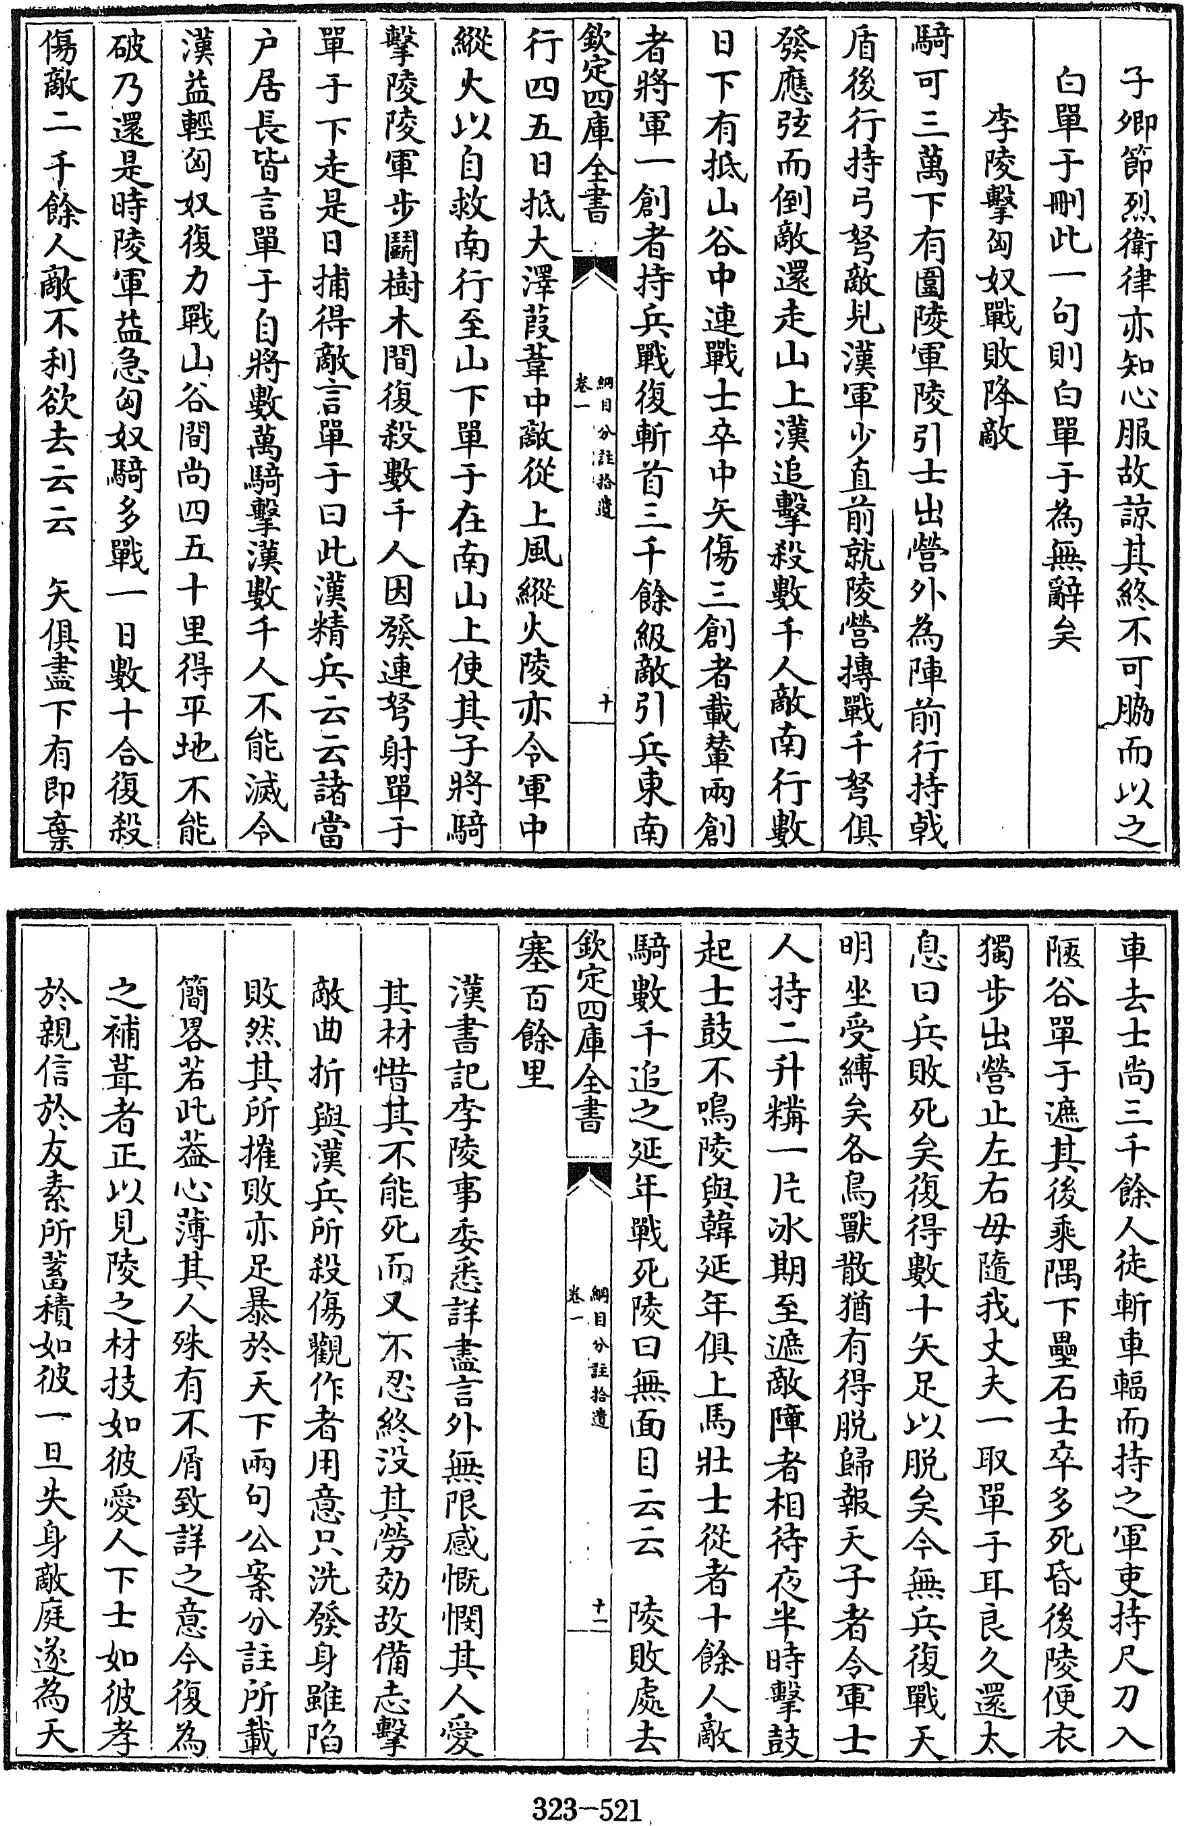 子卿節烈衛律亦知心服故諒其終不可脇而以之
白單于刪此一句則白單于為無辭矣
李陵擊匈奴戰敗降敵
騎可三萬下有圍陵軍陵引士出營外為陣前行持戟
盾後行持弓弩敵見漢軍少直前就陵營搏戰千弩俱
發應弦而倒敵還走山上漢追擊殺數千人敵南行數
日下有抵山谷中連戰士卒中矢傷三創者載輦兩創
者將軍一創者持兵戰復斬首三千餘級敵引兵東南
欽定四庫全書
綱目分註拾遺
卷一
十
行四五日抵大澤葭葦中敵從上風縱火陵亦令軍中
縱火以自救南行至山下單于在南山上使其子將騎
擊陵陵軍步鬬樹木間復殺數千人因發連弩射單于
單于下走是日捕得敵言單于曰此漢精兵云云諸當
户居長皆言單于自將數萬騎擊漢數千人不能滅令
漢益輕匈奴復力戰山谷間尚四五十里得平地不能
破乃還是時陵軍益急匈奴騎多戰一日數十合復殺
傷敵二千餘人敵不利欲去云云　矢俱盡下有即棄
車去士尚三千餘人徒斬車輻而持之軍吏持尺刀入
陿谷單于遮其後乘隅下壘石士卒多死昏後陵便衣
獨步出營止左右毋隨我丈夫一取單于耳良久還太
息曰兵敗死矣復得數十矢足以脱矣今無兵復戰天
明坐受縛矣各鳥獸散猶有得脱歸報天子者令軍士
人持二升糒一片冰期至遮敵障者相待夜半時擊鼓
起士鼓不鳴陵與韓延年俱上馬壯士從者十餘人敵
騎數千追之延年戰死陵曰無面目云云　陵敗處去
欽定四庫全書
綱目分註拾遺
卷一
十一
塞百餘里
漢書記李陵事委悉詳盡言外無限感慨憫其人愛
其材惜其不能死而又不忍終没其勞効故備志擊
敵曲折與漢兵所殺傷觀作者用意只洗發身雖陷
敗然其所摧敗亦足暴於天下兩句公案分註所載
簡畧若此葢心薄其人殊有不屑致詳之意今復為
之補葺者正以見陵之材技如彼愛人下士如彼孝
於親信於友素所蓄積如彼一旦失身敵庭遂為天
323—521